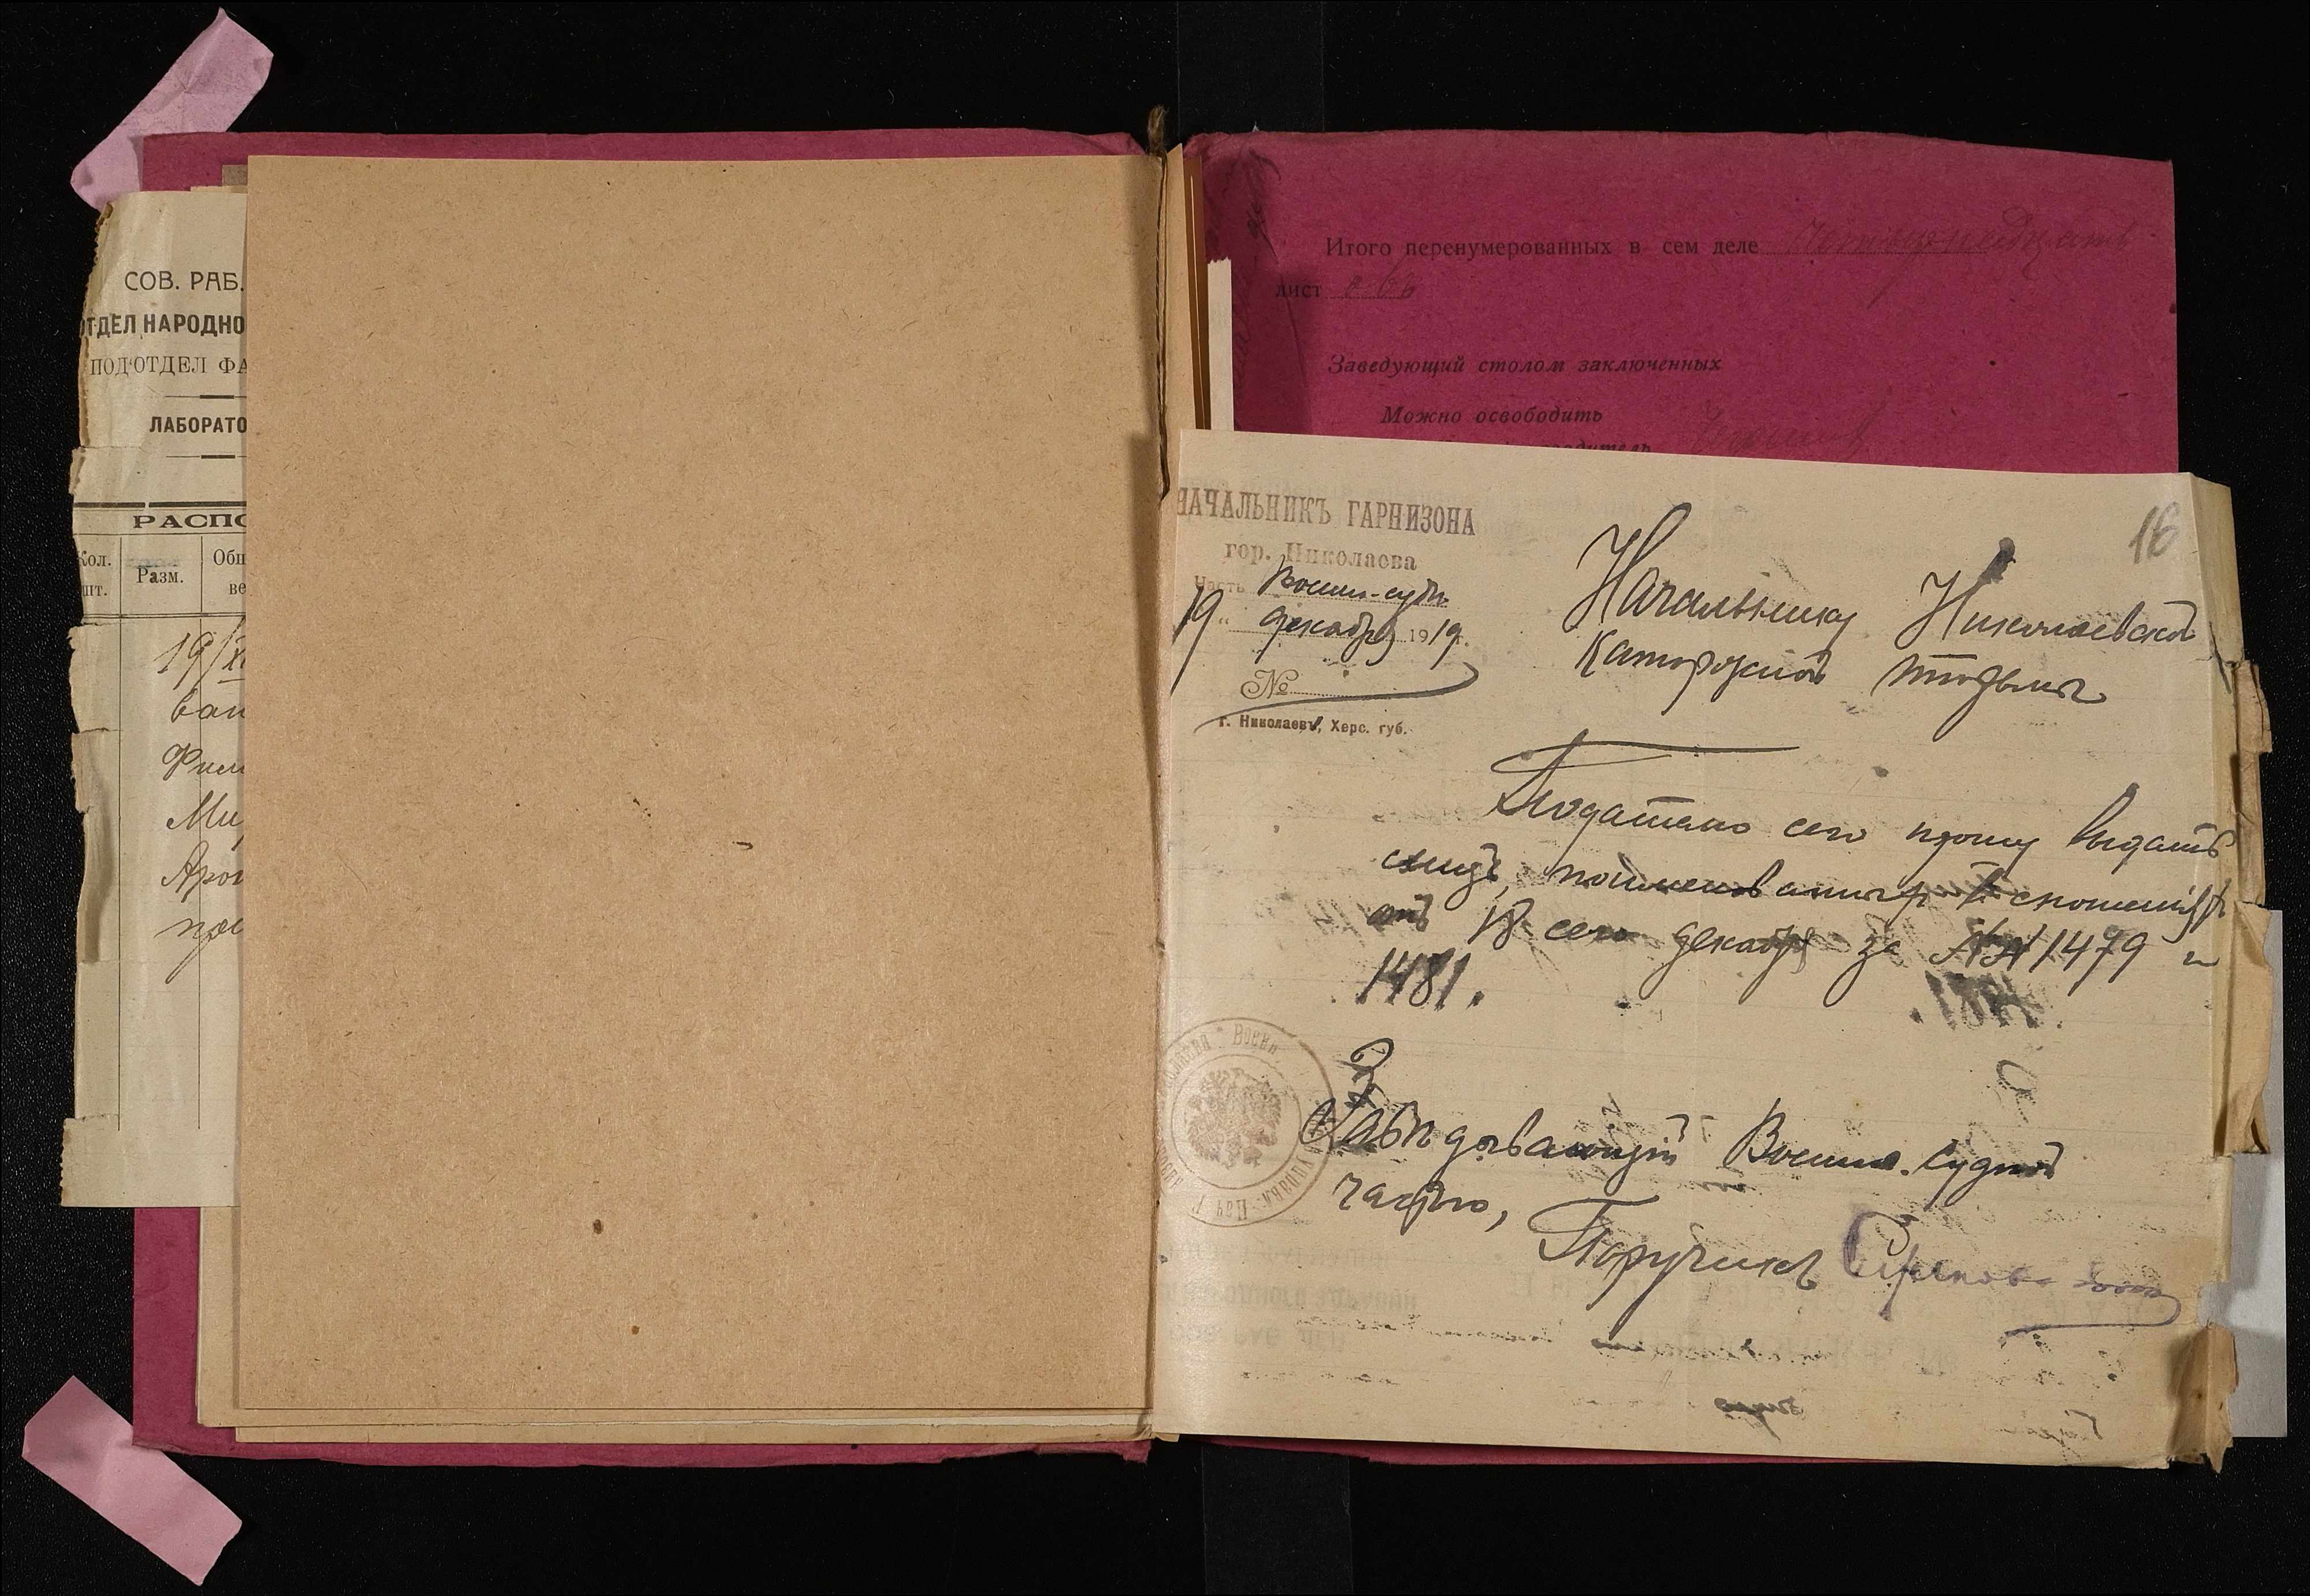 СОВ. РАБ.
ОТДЕЛ НАРОДНО
ПОДОТДЕЛ ФА
ЛАБОРАТО
РАСПО
Кол. шт.
Разм.
Общ ве
19/XI
вам
Фил
Ми
Арон
про
Итого перенумерованных в сем деле
лист
Заведующий столом заключенных
Можно освободить
16
НАЧАЛЬНИКЪ ГАРНИЗОНА
гор. Николаева
Часть Военн-судн.
19 „ декабря 1919 г.
№
г. Николаевъ, Херс. губ.
Начальнику Николаевской
Каторжной тюрьмы
Подателю сего прошу выдать
лицъ, поименованныхъ въ сношеніяхъ
отъ 18 сего декабря за №№ 1479 и
1481.
Завѣдывающій Военно-судной
частью,
Поручикъ